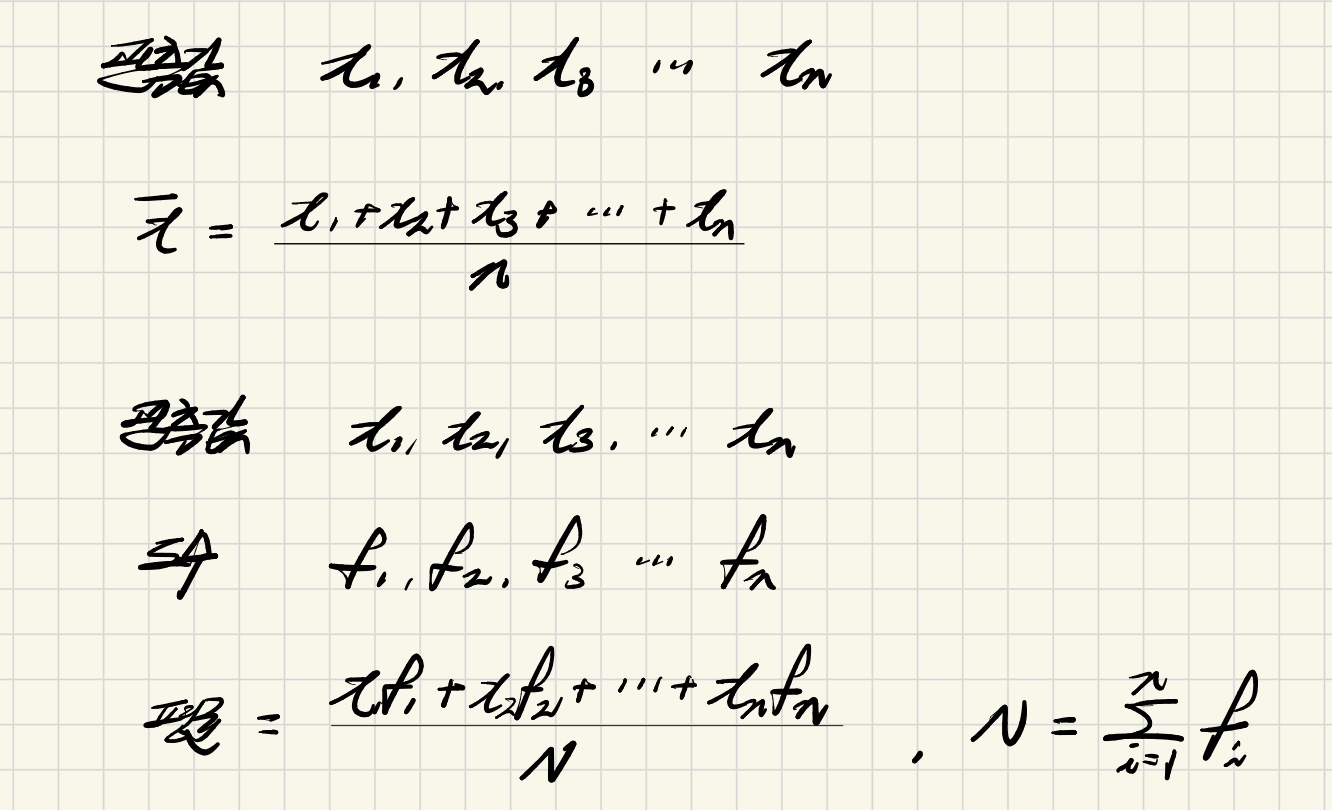 관측값 x₁, x₂, x₃ ⋯ xₙ
x̄ = (x₁ + x₂ + x₃ + ⋯ + xₙ) / n
관측값 x₁, x₂, x₃, ⋯ xₙ
도수 f₁, f₂, f₃ ⋯ fₙ
평균 = (x₁f₁ + x₂f₂ + ⋯ + xₙfₙ) / N , N = ∑ᵢ₌₁ⁿ fᵢ